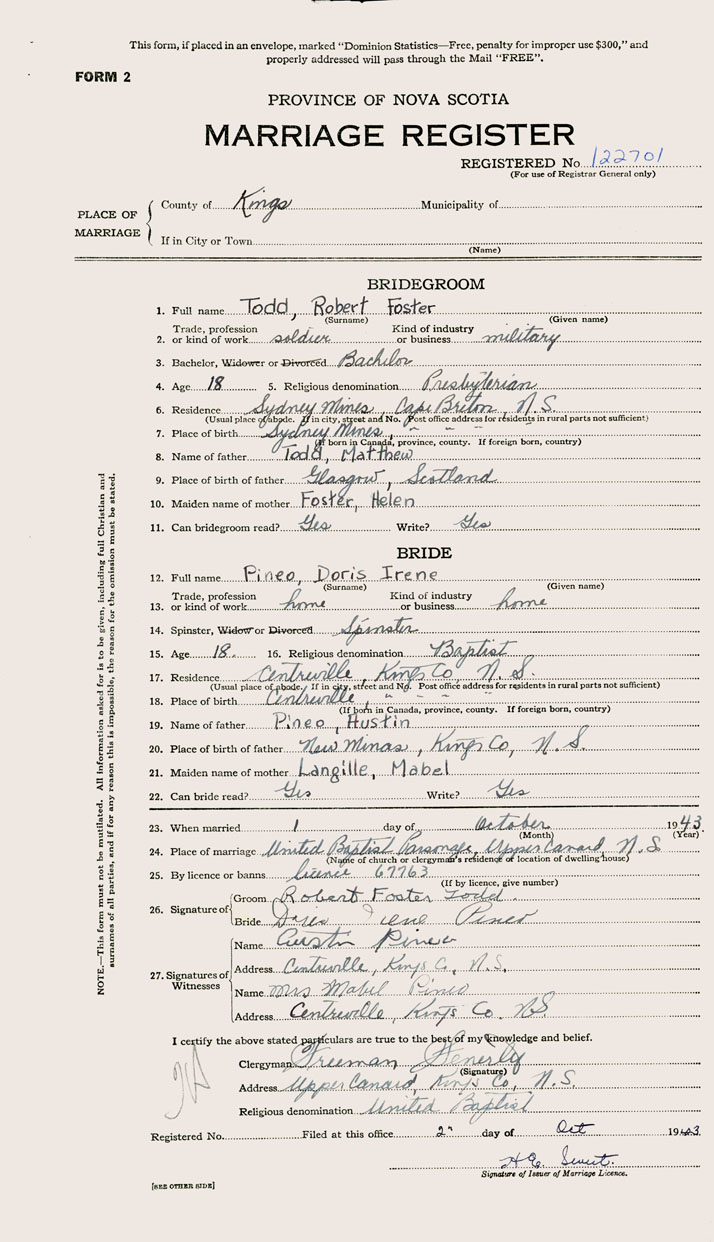 This form, if placed in an envelope, marked "Dominion Statistics—Free, penalty for improper use $300," and
properly addressed will pass through the Mail "FREE".
FORM 2
PROVINCE OF NOVA SCOTIA
MARRIAGE REGISTER
REGISTERED No. 122701
(For use of Registrar General only)
PLACE OF MARRIAGE
County of Kings Municipality of
If in City or Town
(Name)
BRIDEGROOM
1. Full name Todd, Robert Foster
(Surname) (Given name)
2. Trade, profession or kind of work soldier Kind of industry or business military
3. Bachelor, Widower or Divorced Bachelor
4. Age 18 5. Religious denomination Presbyterian
6. Residence Sydney Mines, Cape Breton, N.S.
(Usual place of abode. If in city, street and No. Post office address for residents in rural parts not sufficient)
7. Place of birth Sydney Mines, " " "
(If born in Canada, province, county. If foreign born, country)
8. Name of father Todd, Matthew
9. Place of birth of father Glasgow, Scotland
10. Maiden name of mother Foster, Helen
11. Can bridegroom read? Yes Write? Yes
BRIDE
12. Full name Pineo, Doris Irene
(Surname) (Given name)
13. Trade, profession or kind of work home Kind of industry or business home
14. Spinster, Widow or Divorced Spinster
15. Age 18. 16. Religious denomination Baptist
17. Residence Centreville, Kings Co, N.S.
(Usual place of abode. If in city, street and No. Post office address for residents in rural parts not sufficient)
18. Place of birth Centreville, " " "
(If born in Canada, province, county. If foreign born, country)
19. Name of father Pineo, Hustin
20. Place of birth of father New Minas, Kings Co, N.S.
21. Maiden name of mother Langille, Mabel
22. Can bride read? Yes Write? Yes
23. When married 1 day of October 1943
(Month) (Year)
24. Place of marriage United Baptist Parsonage, Upper Canard, N.S
(Name of church or clergyman's residence or location of dwelling house)
25. By licence or banns licence 67763
(If by licence, give number)
26. Signature of Groom Robert Foster Todd.
Bride Doris Irene Pineo
27. Signatures of Witnesses
Name Austin Pineo
Address Centreville, Kings Co, N.S.
Name Mrs Mabel Pineo
Address Centreville, Kings Co. N.S
I certify the above stated particulars are true to the best of my knowledge and belief.
Clergyman Freeman Fenerty
(Signature)
Address Upper Canard, Kings Co, N.S.
Religious denomination United Baptist
Registered No. Filed at this office 2" day of Oct 1943
Signature of Issuer of Marriage Licence.
[SEE OTHER SIDE]
NOTE.—This form must not be mutilated. All information asked for is to be given, including full Christian and
surnames of all parties, and if for any reason this is impossible, the reason for the omission must be stated.